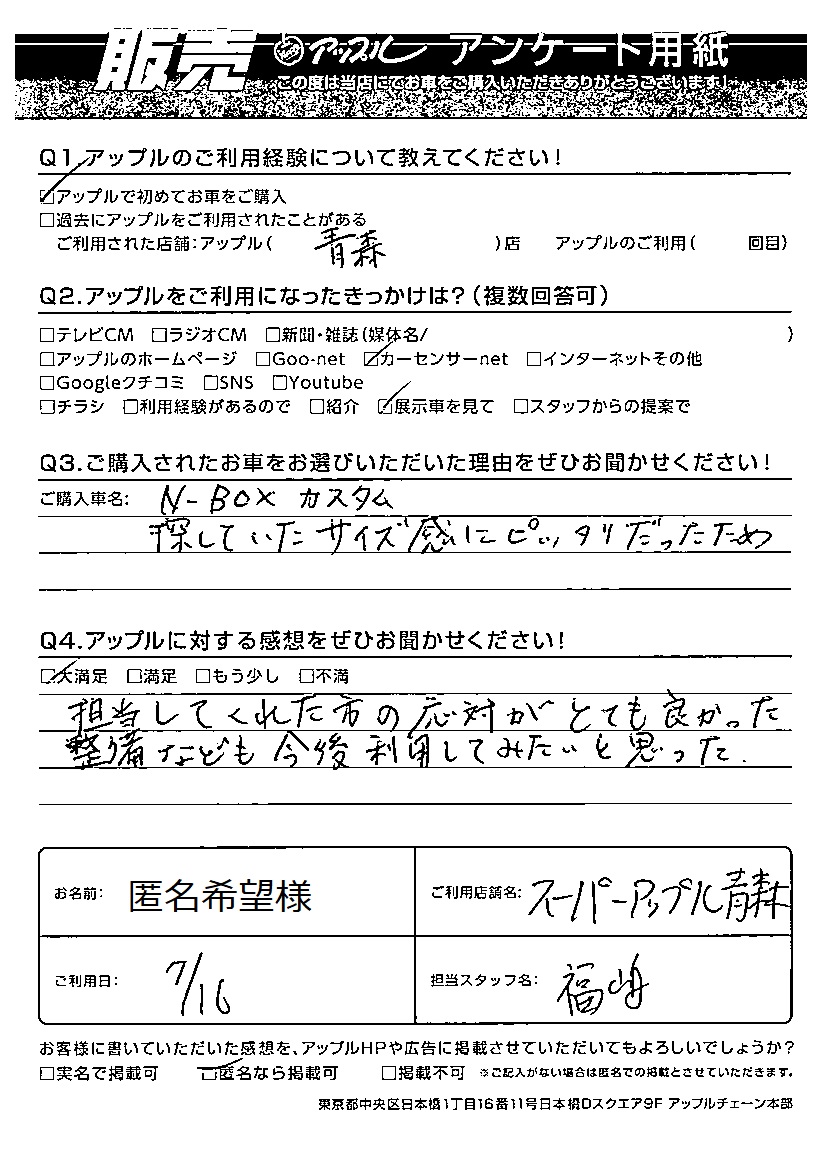 販売 アップル アンケート用紙
この度は当店にてお車をご購入いただきありがとうございます!
Q1.アップルのご利用経験について教えてください!
☑アップルで初めてお車をご購入
□過去にアップルをご利用されたことがある
ご利用された店舗:アップル( 青森 )店 アップルのご利用( 回目)
Q2.アップルをご利用になったきっかけは?(複数回答可)
□テレビCM □ラジオCM □新聞・雑誌(媒体名/ )
□アップルのホームページ □Goo-net ☑カーセンサーnet □インターネットその他
□Googleクチコミ □SNS □Youtube
□チラシ □利用経験があるので □紹介 ☑展示車を見て □スタッフからの提案で
Q3.ご購入されたお車をお選びいただいた理由をぜひお聞かせください!
ご購入車名: N-BOX カスタム
探していたサイズ感にピッタリだったため
Q4.アップルに対する感想をぜひお聞かせください!
☑大満足 □満足 □もう少し □不満
担当してくれた方の応対がとても良かった
整備なども今後利用してみたいと思った.
お名前: 匿名希望様 ご利用店舗名: スーパーアップル青森
ご利用日: 7/16 担当スタッフ名: 福嶋
お客様に書いていただいた感想を、アップルHPや広告に掲載させていただいてもよろしいでしょうか?
□実名で掲載可 ☑匿名なら掲載可 □掲載不可 ※ご記入がない場合は匿名での掲載とさせていただきます。
東京都中央区日本橋1丁目16番11号日本橋Dスクエア9F アップルチェーン本部